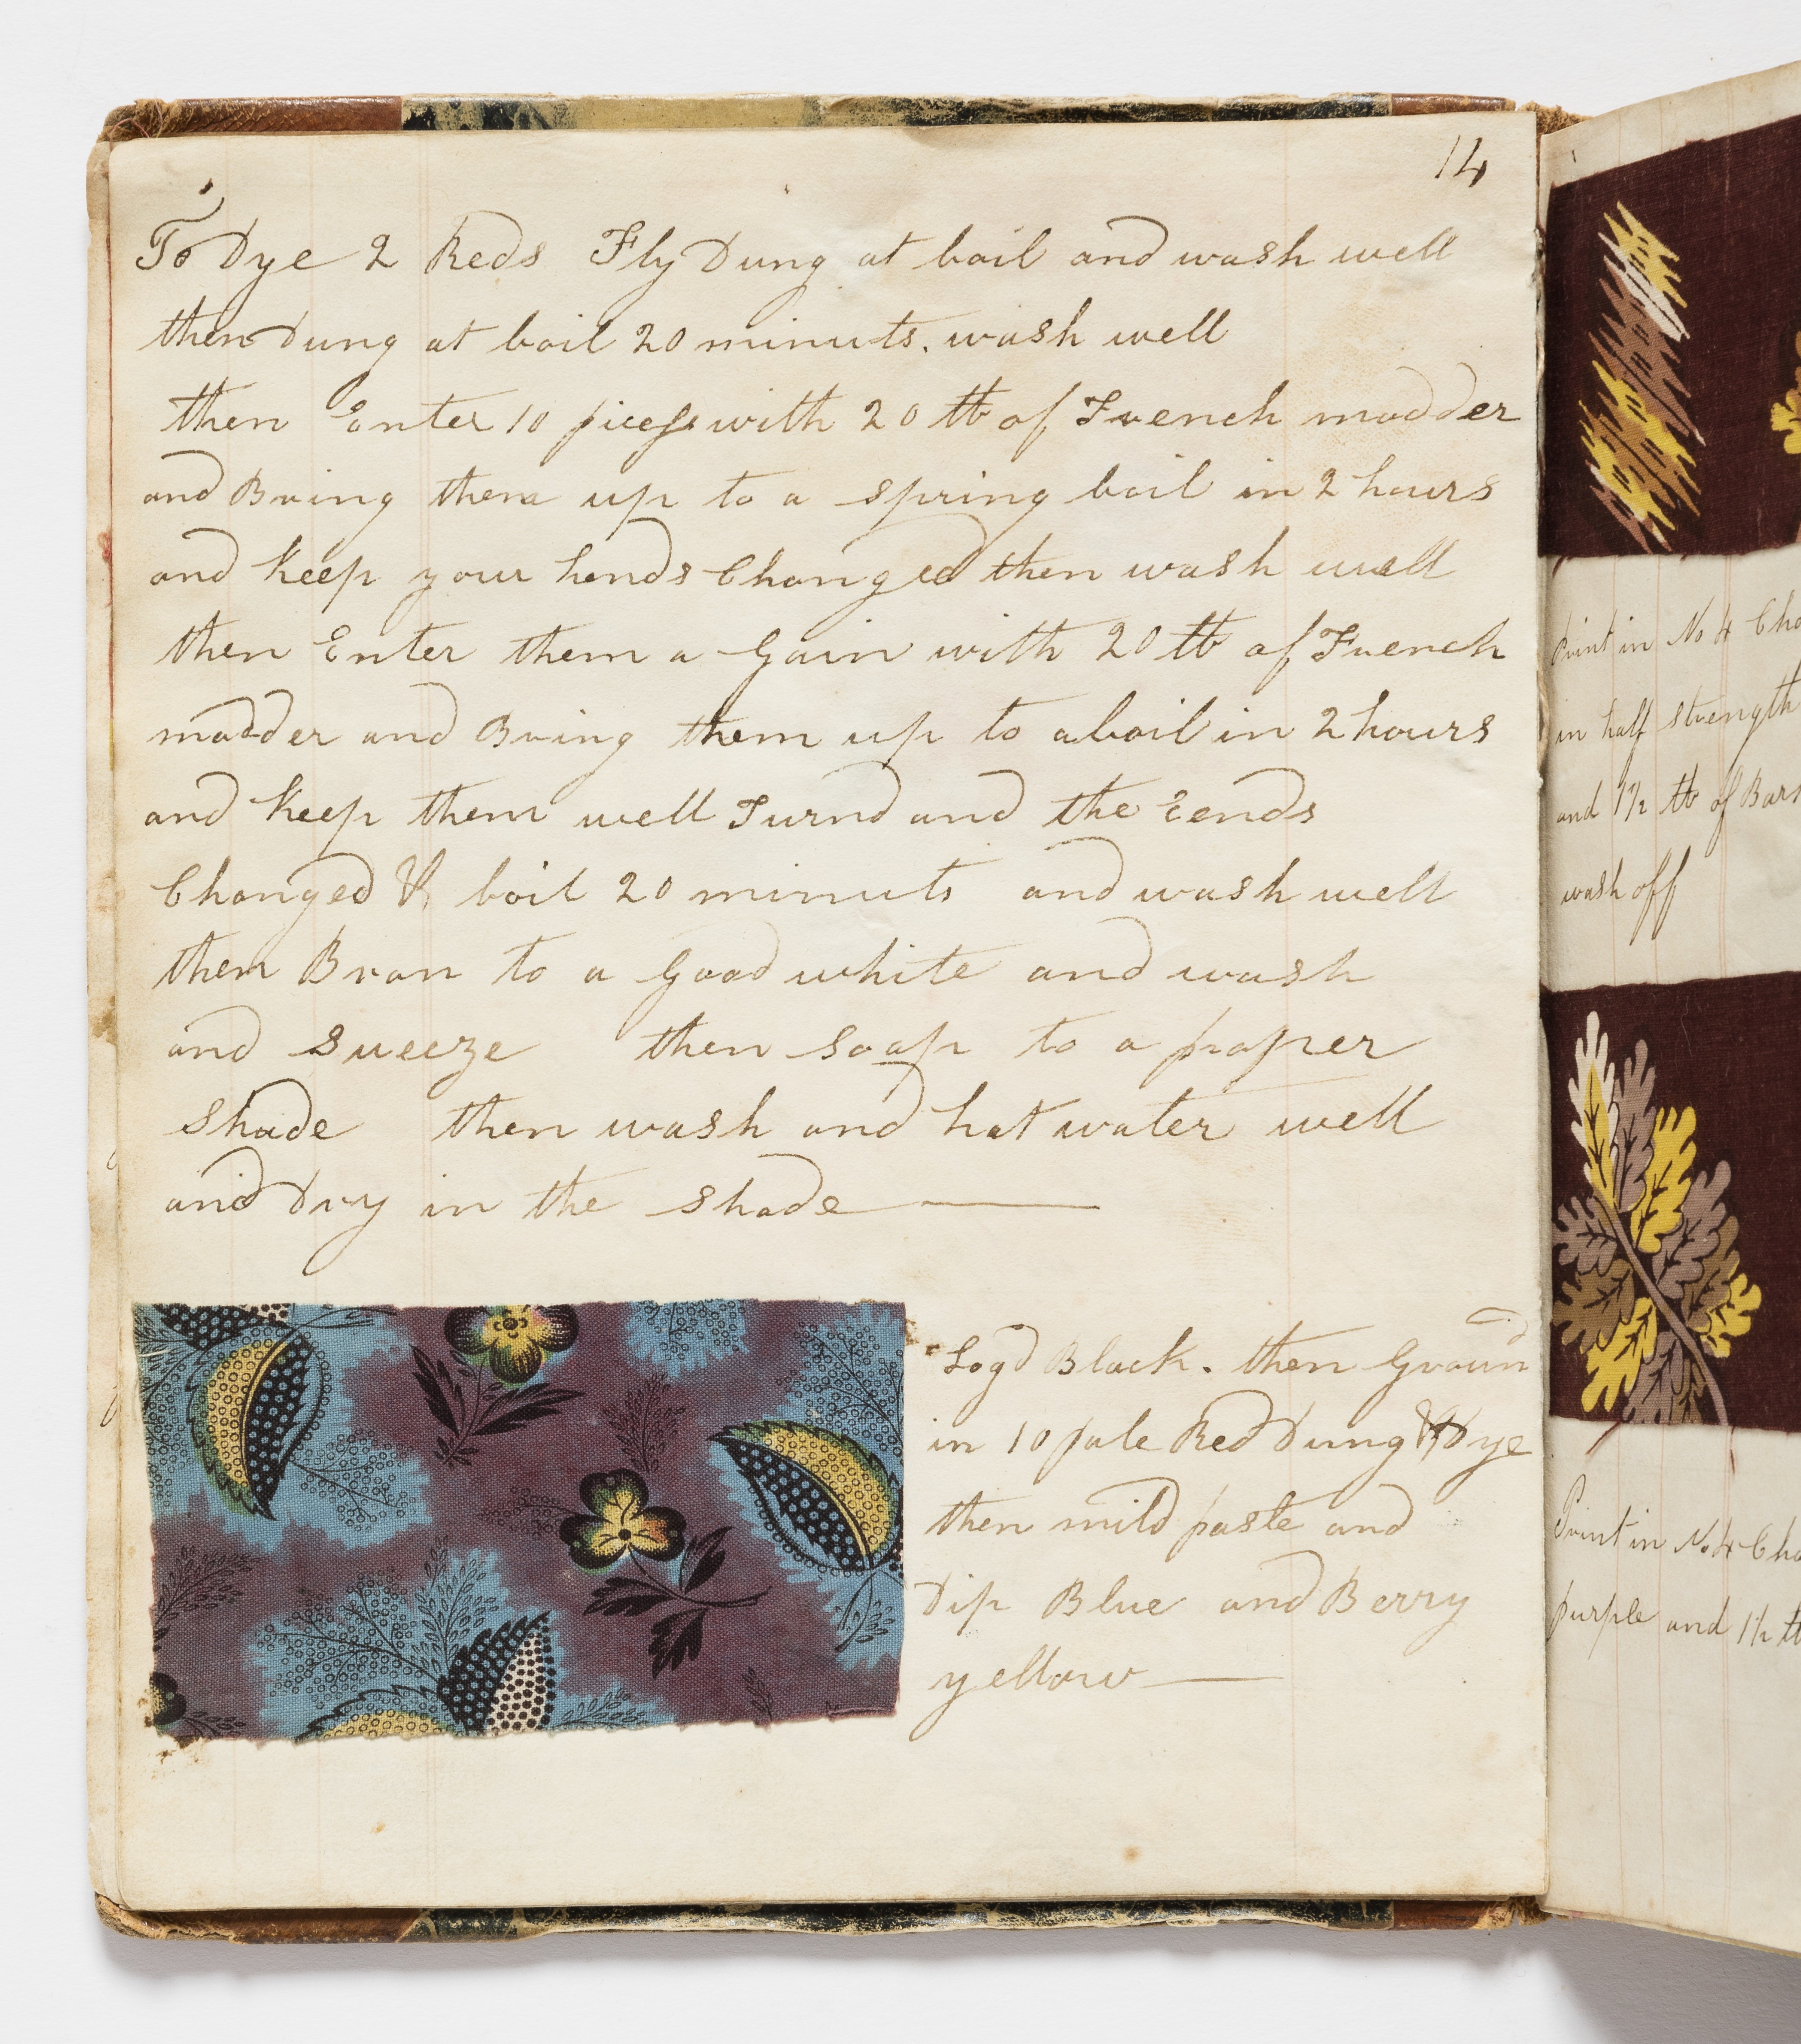 14
To Dye 2 Reds Fly Dung at boil and wash well
then Dung at boil 20 minuts. wash well
then Enter 10 pieces with 20 lb of French madder
and Bring them up to a spring boil in 2 hours
and keep your hends Changed then wash well
then Enter them a Gain with 20 lb of French
madder and Bring them up to a boil in 2 hours
and keep them well Turnd and the Eends
Changed & boil 20 minuts and wash well
then Bran to a Good white and wash
and Sueeze then Soap to a proper
Shade then wash and hot water well
and Dry in the Shade
Logd Black. then Ground
in 10 pale Red Dung & Dye
then mild paste and
Dip Blue and Berry
yellow
Print in No 4 Cho
in half strength
and 1½ lb of Bar
wash off
Print in No 4 Cho
purple and 1½ lb